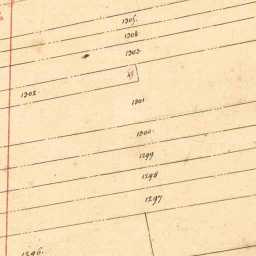 1305.
1304
1303
1302
1301
1300
1299
1298
1297
1296.